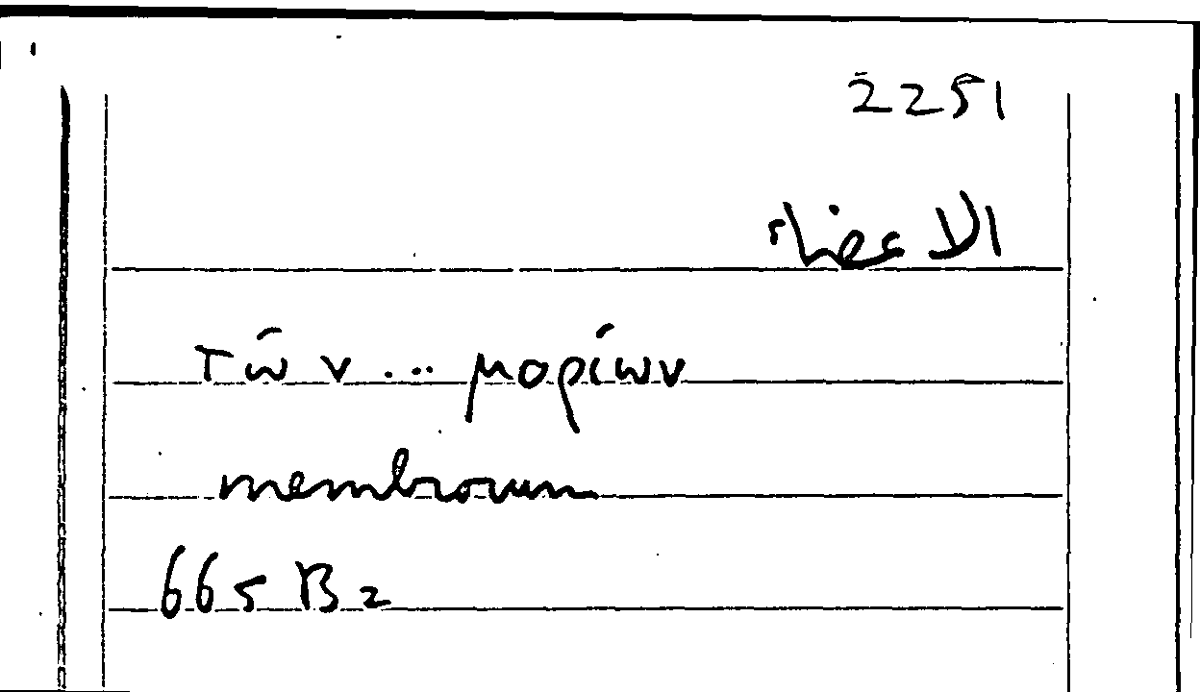 2251
الاعضاء
τῶν ... μορίων
membrorum
665 B2